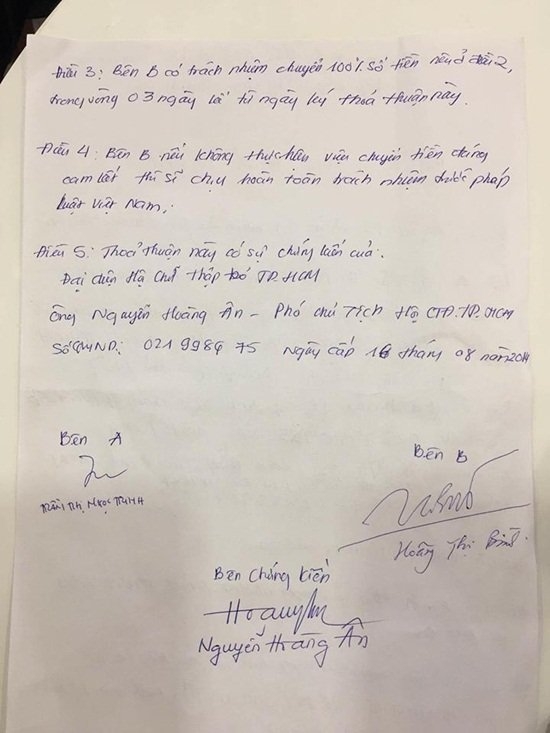 Điều 3: Bên B có trách nhiệm chuyển 100% số tiền nêu ở điều 2,
trong vòng 03 ngày kể từ ngày ký thoả thuận này.
Điều 4: Bên B nếu không thực hiện việc chuyển tiền đúng
cam kết thì sẽ chịu hoàn toàn trách nhiệm trước pháp
luật Việt Nam.
Điều 5: Thoả thuận này có sự chứng kiến của.
Đại diện Hội Chữ thập đỏ TP.HCM
Ông Nguyễn Hoàng Ân - Phó chủ Tịch Hội CTĐ.TP.HCM
Số CMND: Ngày cấp 16 tháng 08 năm 2014
Bên A
TRẦN THỊ NGỌC TRINH
Bên B
Hoàng Thị
Bên Chứng kiến
Nguyễn Hoàng Ân